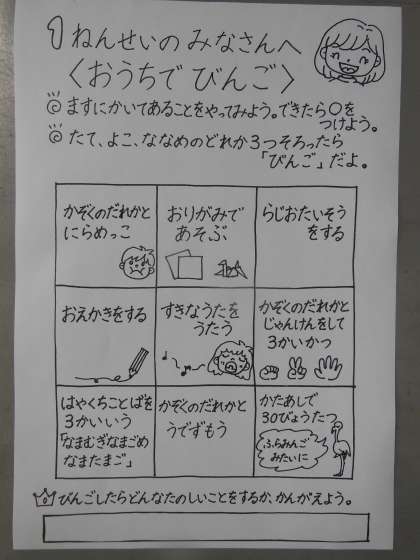 1ねんせいの みなさんへ
〈おうちで びんご〉
◎ ますにかいてあることをやってみよう。できたら○を
つけよう。
◎ たて、よこ、ななめのどれか3つそろったら
「びんご」だよ。
かぞくのだれかと
にらめっこ
おりがみで
あそぶ
らじおたいそう
をする
おえかきをする
すきなうたを
うたう
かぞくのだれかと
じゃんけんをして
3かいかつ
はやくちことばを
3かいいう
「なまむぎなまごめ
なまたまご」
かぞくのだれかと
うでずもう
かたあしで
30びょうたつ
ふらみんご
みたいに
びんごしたらどんなたのしいことをするか、かんがえよう。